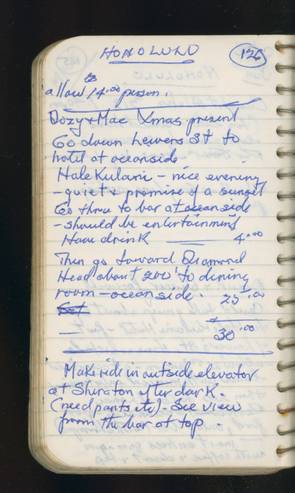 HONOLULU
126
allow 14.00 person.
Dozy & Mac Xmas present
Go down Lewers St to
hotel at oceanside
Hale Kulani - nice evening
- quiet & promise of a sunset
Go thru to bar at ocean side
- should be entertaining
Have drink 4.00
Then go toward Diamond
Head about 200' to dining
room - oceanside. 25.00
30.00
Make ride in outside elevator
at Sheraton after dark.
(need pants etc) - See view
from the bar at top.